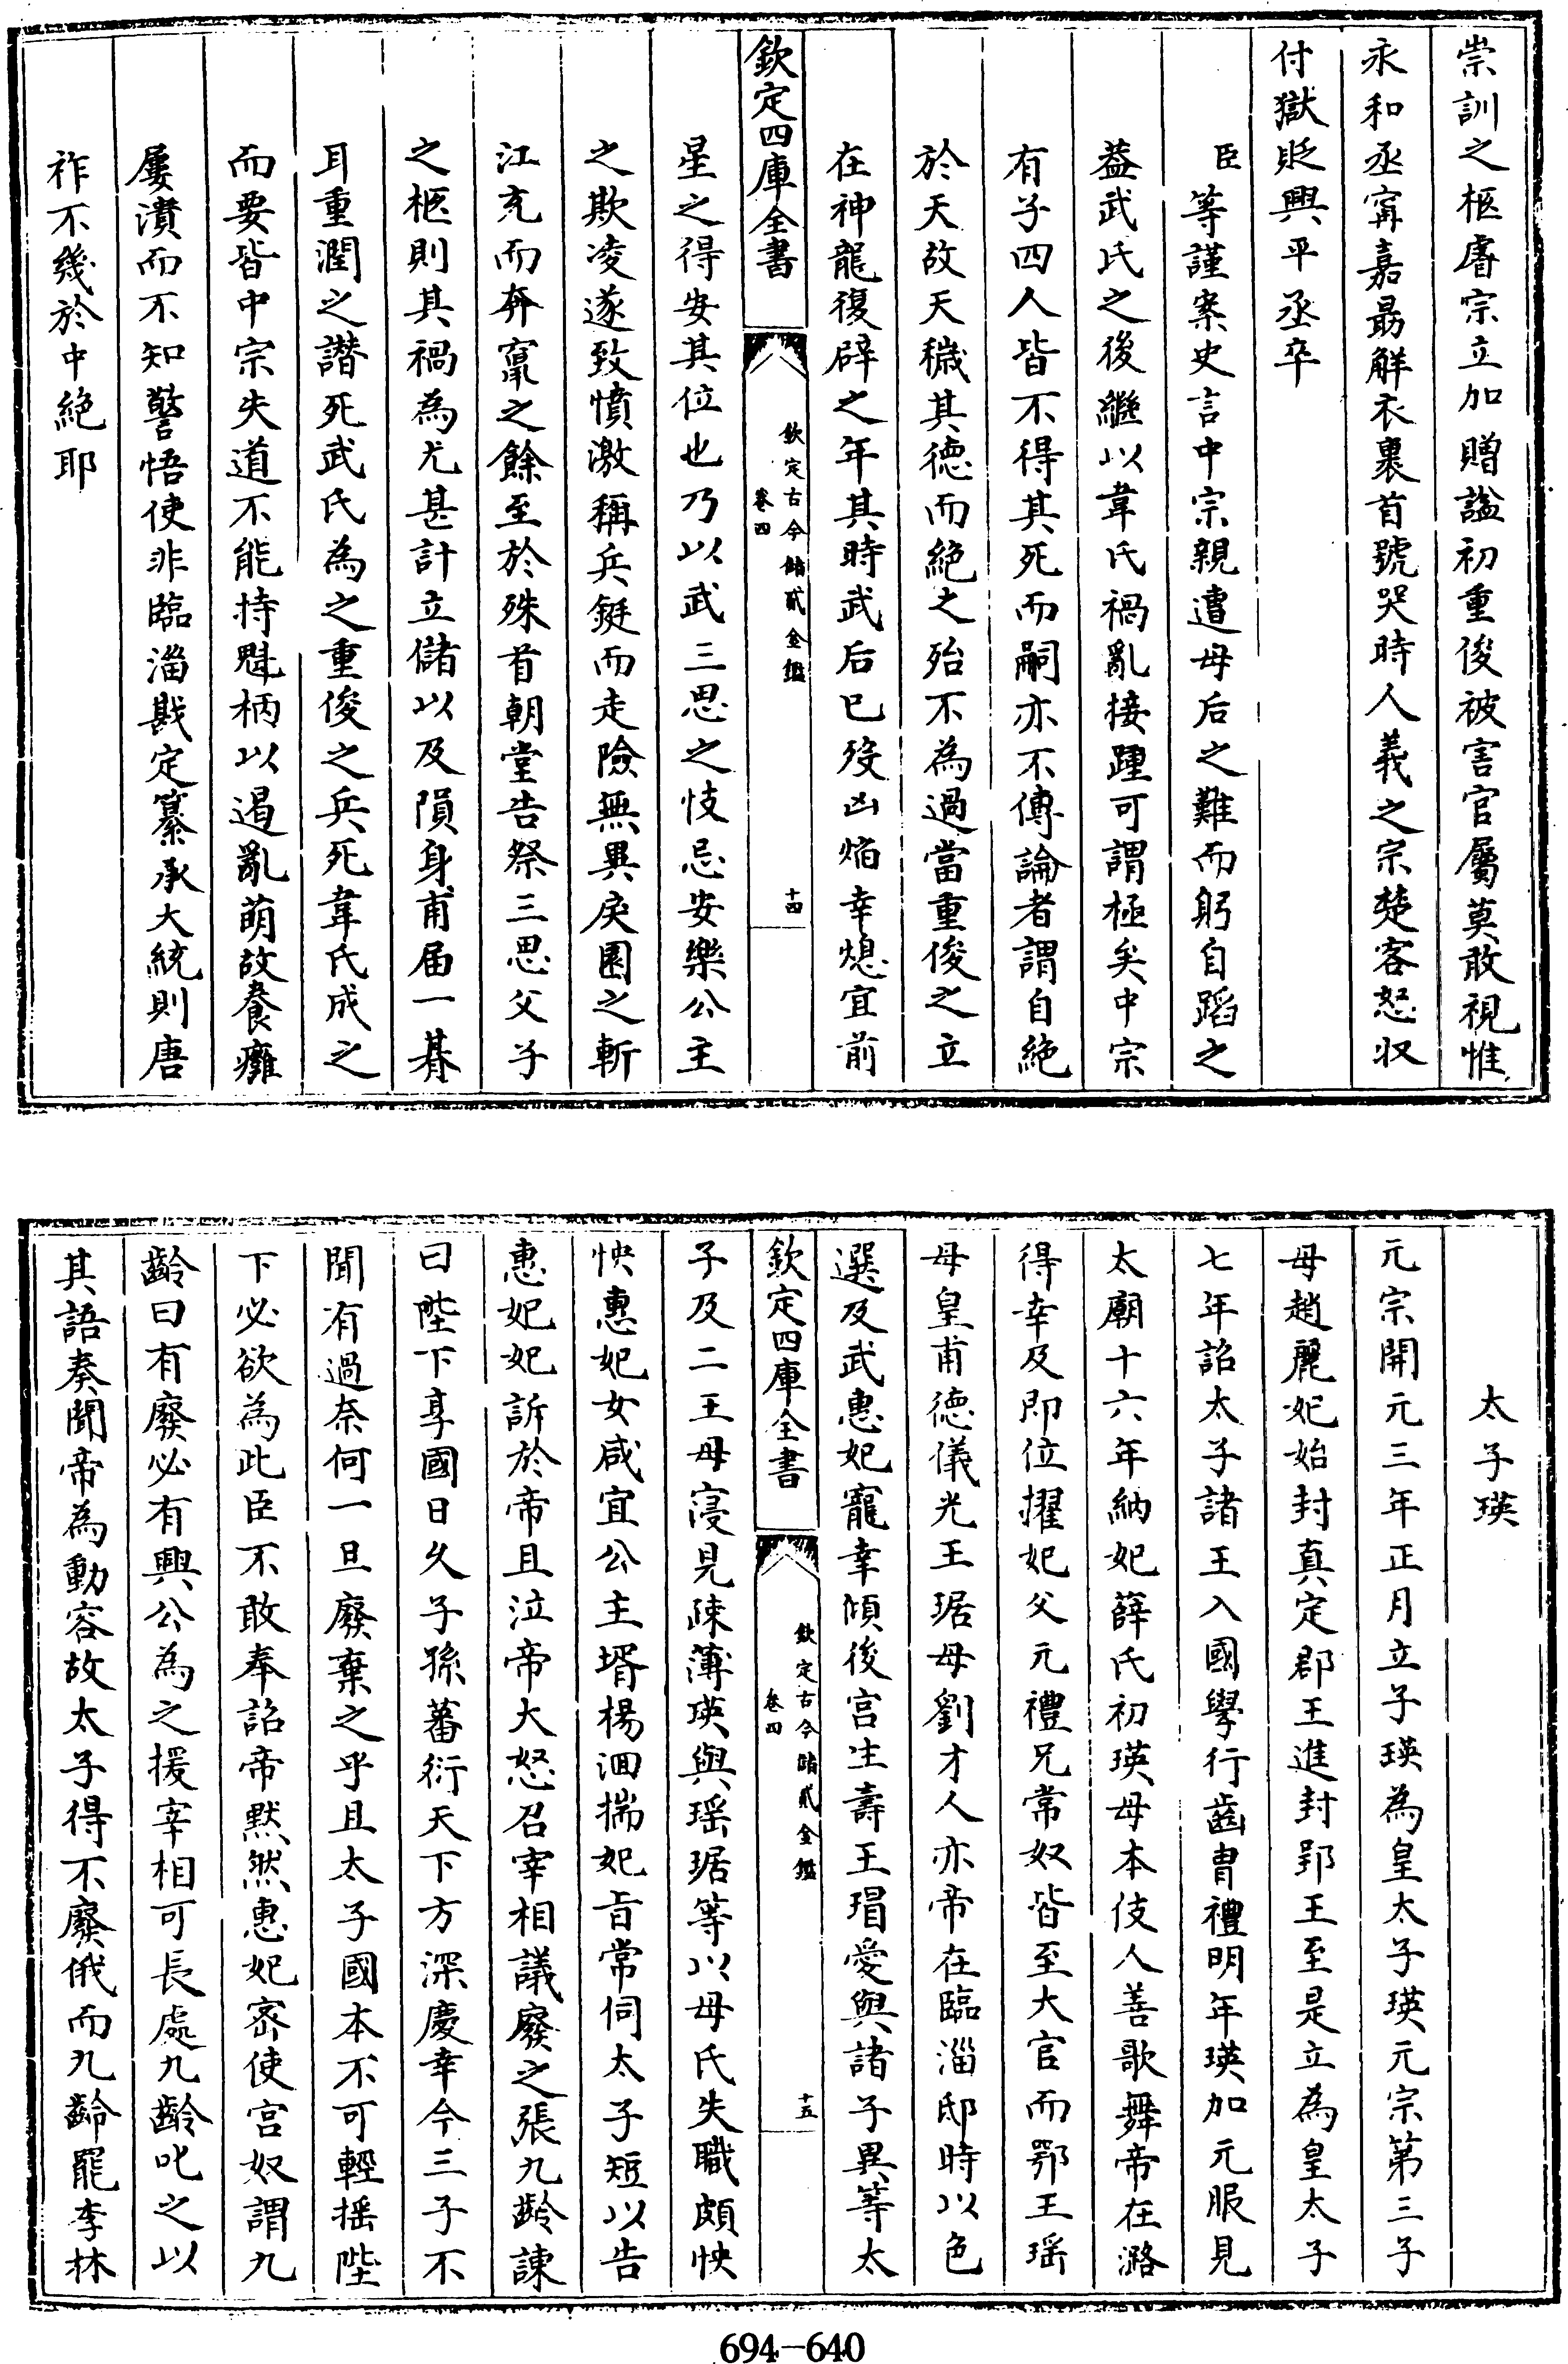 崇訓之柩睿宗立加贈諡初重俊被害官屬莫敢視惟
永和丞寗嘉朂解衣裹首號哭時人義之宗楚客怒収
付獄貶興平丞卒
臣等謹案史言中宗親遭母后之難而躬自蹈之
葢武氏之後繼以韋氏禍亂接踵可謂極矣中宗
有子四人皆不得其死而嗣亦不傳論者謂自絶
於天故天穢其德而絶之殆不為過當重俊之立
在神龍復辟之年其時武后已歿凶焰幸熄宜前
欽定四庫全書
欽定古今儲貳金鑑
卷四
十四
星之得安其位也乃以武三思之忮忌安樂公主
之欺凌遂致憤激稱兵鋌而走險無異戾園之斬
江充而奔竄之餘至於殊首朝堂告祭三思父子
之柩則其禍為尤甚計立儲以及隕身甫届一朞
耳重潤之譖死武氏為之重俊之兵死韋氏成之
而要皆中宗失道不能持魁柄以遏亂萌故養癰
屢潰而不知警悟使非臨淄戡定纂承大統則唐
祚不幾於中絶耶
太子瑛
元宗開元三年正月立子瑛為皇太子瑛元宗第三子
母趙麗妃始封真定郡王進封郢王至是立為皇太子
七年詔太子諸王入國學行齒胄禮明年瑛加元服見
太廟十六年納妃薛氏初瑛母本伎人善歌舞帝在潞
得幸及即位擢妃父元禮兄常奴皆至大官而鄂王瑶
母皇甫德儀光王琚母劉才人亦帝在臨淄邸時以色
選及武惠妃寵幸傾後宫生壽王瑁愛與諸子異等太
欽定四庫全書
欽定古今儲貳金鑑
卷四
十五
子及二王母寖見疎薄瑛與瑶琚等以母氏失職頗怏
怏惠妃女咸宜公主壻楊洄揣妃旨常伺太子短以告
惠妃妃訴於帝且泣帝大怒召宰相議廢之張九齡諫
曰陛下享國日久子孫蕃衍天下方深慶幸今三子不
聞有過奈何一旦廢棄之乎且太子國本不可輕摇陛
下必欲為此臣不敢奉詔帝黙然惠妃宻使宫奴謂九
齡曰有廢必有興公為之援宰相可長處九齡叱之以
其語奏聞帝為動容故太子得不廢俄而九齡罷李林
694-640